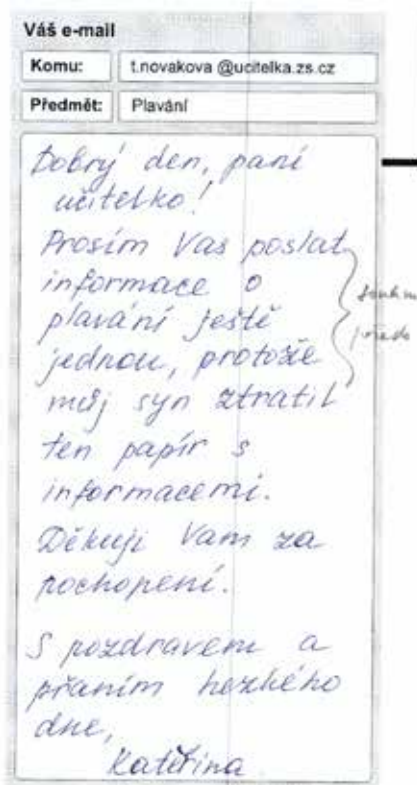 Váš e-mail
Komu: t.novakova @ucitelka.zs.cz
Předmět: Plavání
Dobrý den, paní
učitelko!
Prosím Vas poslat
informace o
plavání ještě
jednou, protože
můj syn ztratil
ten papír s
informacemi.
Děkuji Vam za
pochopení.
S pozdravem a
přaním hezkého
dne,
Kateřina